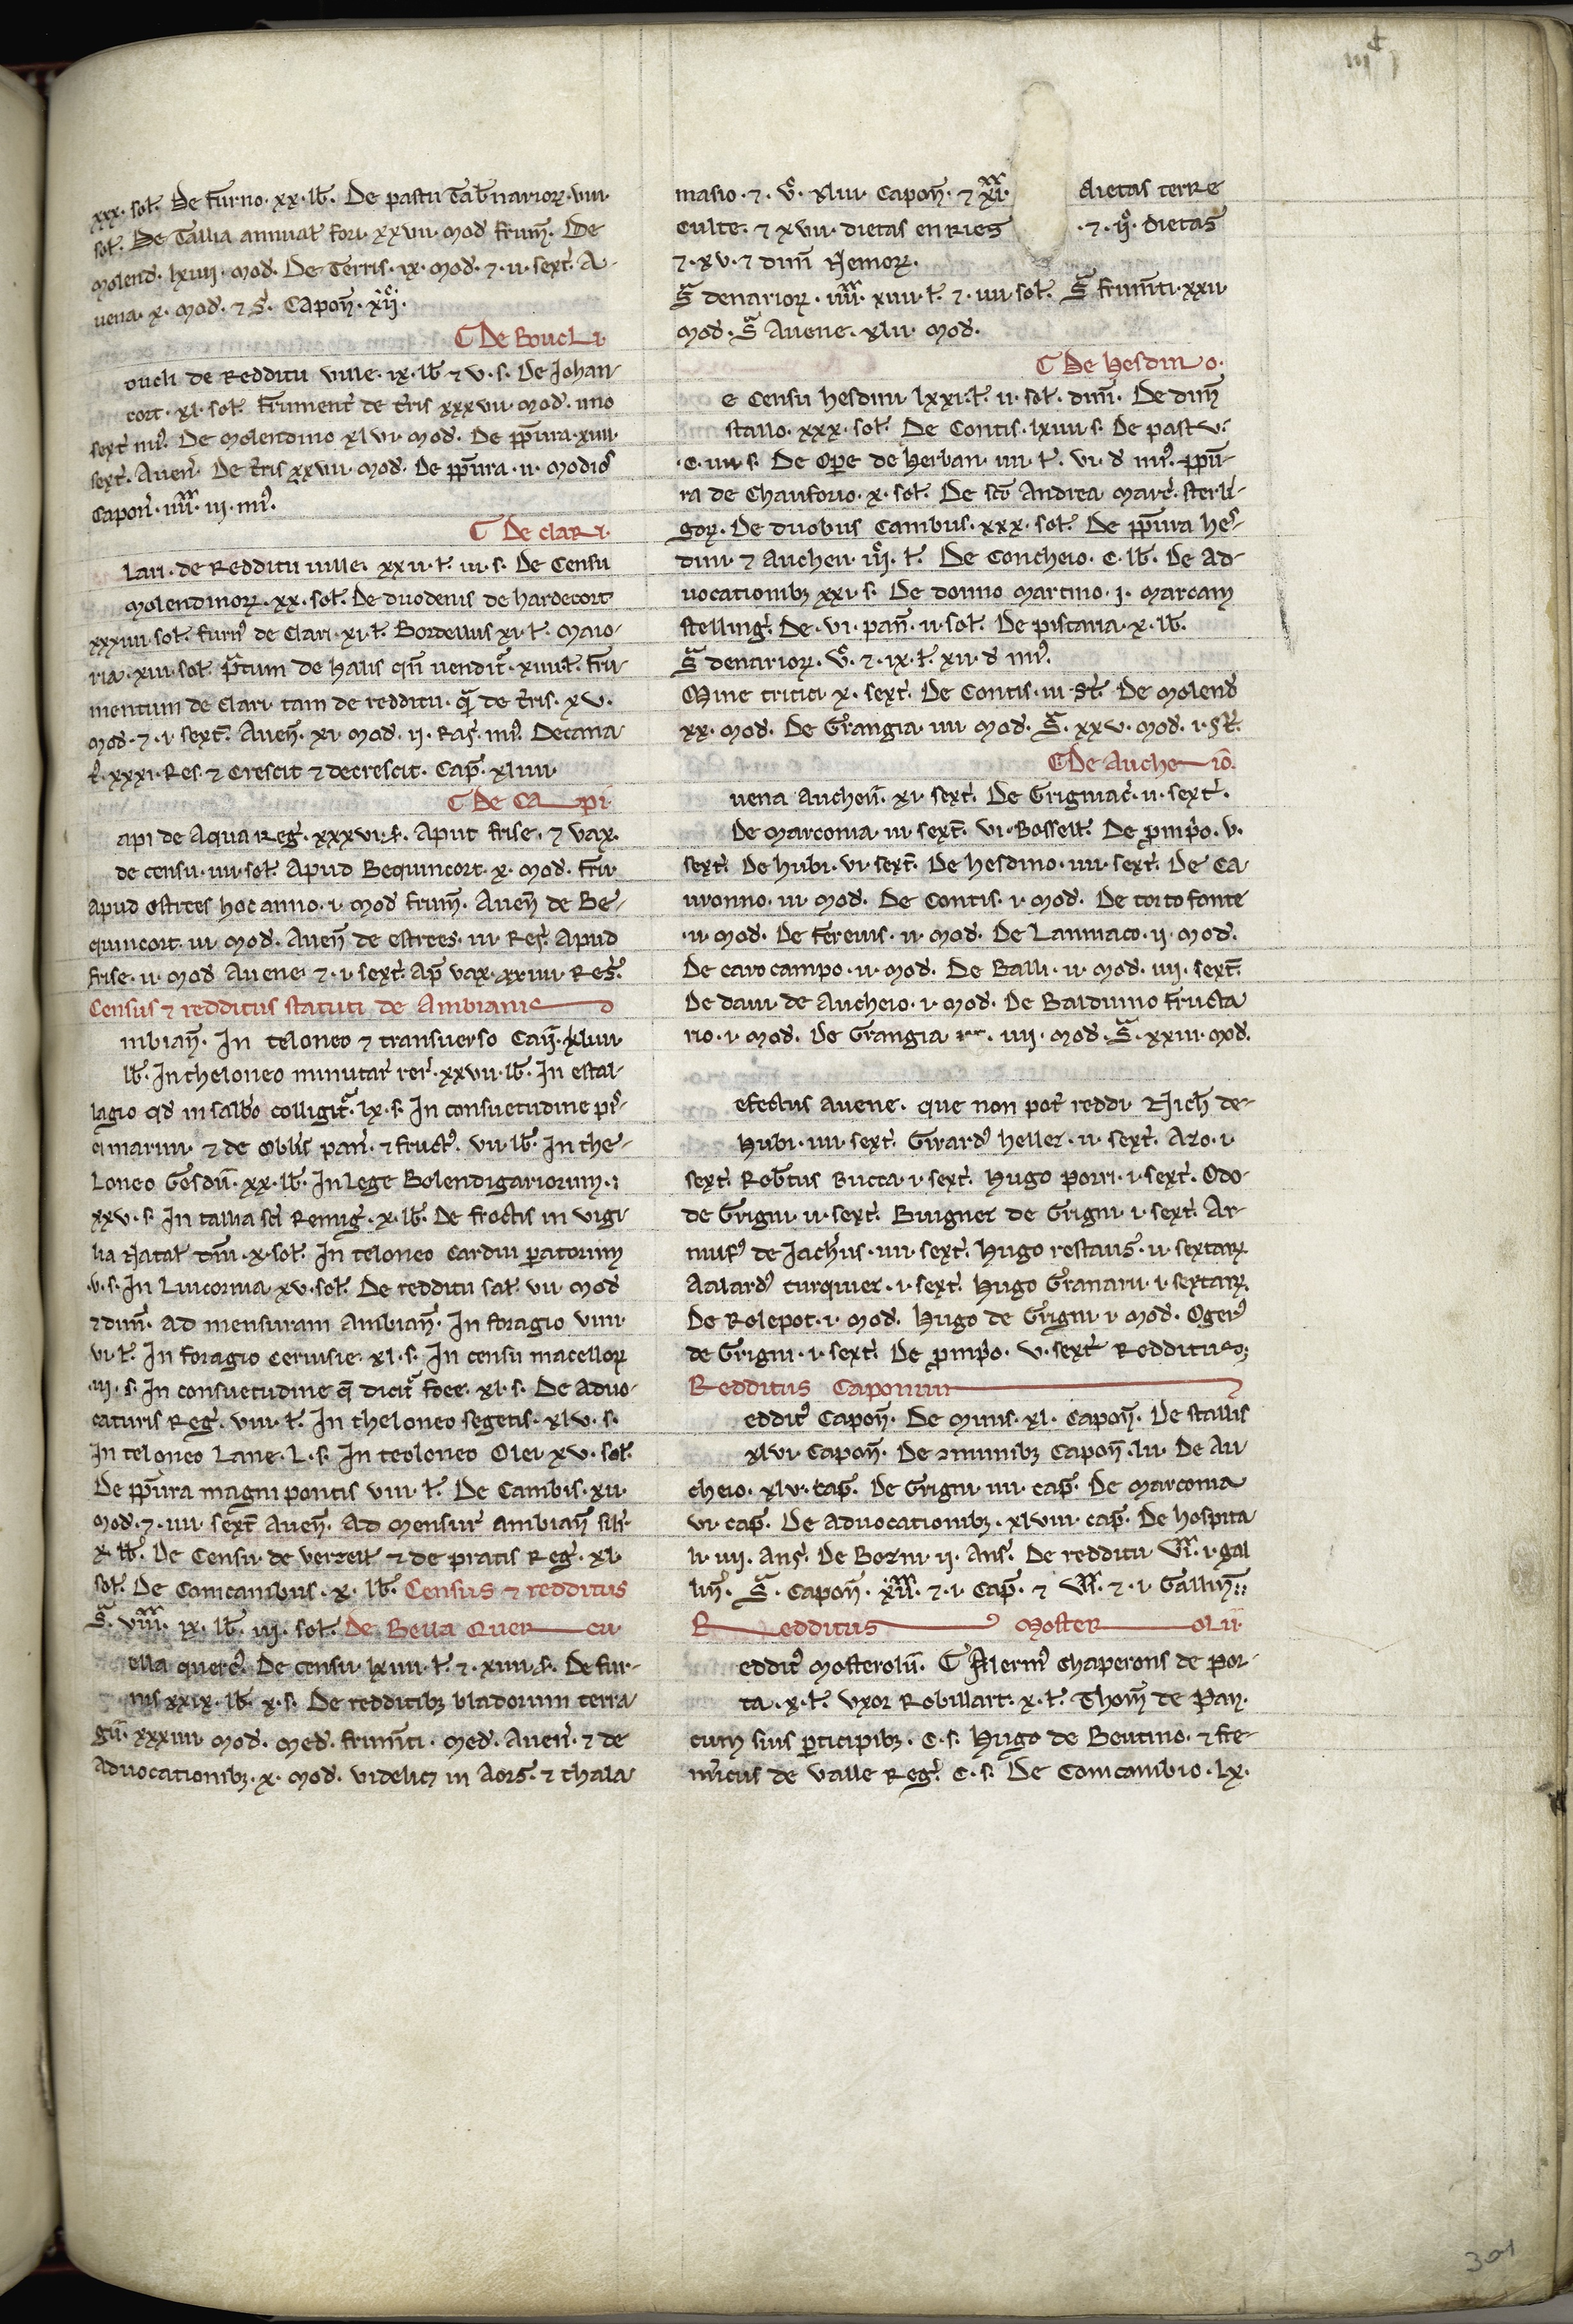 xxx. sol. De furno. xx. lb. De pastu Tab'narior. viii.
sol. De Tallia annual fori. xxvii. mod frum. De
molend. lxiiij. mod. De Terris. ix. mod. ⁊. ii. sext. A-
uena. x. mod. ⁊ S. Capon.
De Boucli.
oucli de Redditu uille. ix. lb ⁊ v. s. De Johan-
cort. xl. sol. Frument de tris xxxvii. mod. uno
sext mi'. De molendino xlvi. mod. De ppura. xiiii.
sext. Auen. De tris xxviii. mod. De ppura. ii. modios
Capon. iiii. iij. mi'.
De clari.
lari. de Redditu uille. xxii. t. iii. s. De Censu
molendinor. xx. sol. De duodenis de hardecort
xxxiiii. sol. furn' de Clari. xi. t. Bordellus xi. t. Maio-
ria. xiii. sol. p'tum de halis qn uendit'. xiiii. t. fru-
mentum de Clari. tam de redditu. q' de tris. xv.
mod. ⁊. i. sext. Auen. xi. mod. ii. Ras. mi'. Decana-
t'. xxxi. Res. ⁊ Crescit ⁊ decrescit. Cap. xliiii.
De Capi.
api de Aqua Reg. xxxvi. s. Aput frise. ⁊ vax.
de censu. iiii. sol. Apud Bequincort. x. mod. fru.
apud estrees hoc anno. i. mod frum. Auen de Be-
quincort. iii. mod. Auen de estrees. iii. Res. Apud
frise. ii. mod Auene ⁊. i. sext. Ap vax. xxiiii. Res.
Census ⁊ redditus statuti de Ambianis
mbian. In teloneo ⁊ transuerso Can. xliiii.
lb. In theloneo minutar' rer'. xxvii. lb. In estal-
lagio qd in salb'o colligit'. lx. s. In consuetudine pi-
cimarum. ⁊ de oblis pan. ⁊ fruct'. vii. lb. In the-
loneo Gosdu. xx. lb. In lege Bolendigariorum.
xxv. s. In tallia sci Remig. x. lb. De froctis in vigi-
lia Natal dni. x. sol. In teloneo Cardui paratorum
v. s. In Luicornia xv. sol. De redditu sal. vii. mod
⁊ dim. ad mensuram Ambian. In foragio viiii.
vi. t. In foragio Ceruisie. xl. s. In censu macellor
iij. s. In consuetudine q dicit' foee. xl. s. De Aduo-
caturis Reg. viii. t. In theloneo segetis. xlv. s.
In teloneo Lane. L. s. In teoloneo Olei xv. sol.
De ppura magni pontis viii. t. De Cambis. xii.
mod. ⁊. iiii. sext Auen. ad mensur' ambian silr
x lb. De Censu. de verzeil. ⁊ de pratis Reg. xl.
sol. De Comcambiis. x. lb. Census ⁊ redditus
S. ix. lb. iij. sol. De Bella Quercu.
ella querc'. De censu. lxiiii. t. ⁊. xiiii. s. De fur-
nis xxix. lb. x. s. De redditibz bladorum terra
gii. xxxiiii. mod. med. frumti. med. Auen. ⁊ de
Aduocationibz. x. mod. videlic; in Aors. ⁊ thala
masio. ⁊. v. xliii. Capon. ⁊ xi. dietas terre
culte. ⁊ xvii. dietas en Ries . ⁊. ij. dietas
⁊. xv. ⁊ dim Nemor.
S denarior. iiii. xiiii. t. ⁊. iiii. sol. S frumti. xxii.
mod. S Auene. xlii. mod.
De Hesdino.
e Censu hesdini. lxxi. t. ii. sol. dim. De dim
stallo. xxx. sol. De Contis. lxiiii s. De pastu.
c. iiii. s. De Ope de herban. iiii. t. vi. d mi'. ppu-
ra de Chauforio. x. sol. De sco Andrea marc. sterli-
gor. De duobus Cambus. xxx. sol. De ppura hes-
dini. ⁊ Aucheii. iij. t. De Concheio. c. lb. De Ad-
uocationibz xxi. s. De donno martino. j. marcam
stelling. De. vi. pan. ii. sol. De piscaria. x. lb.
S denarior. v. ⁊. ix. t. xii. d mi'.
Mine tritici x. sext. De Contis. iii. st. De Molend
xx. mod. De Grangia iiii. mod. S. xxv. mod. i. st.
De Aucheio.
uena Aucheii. xi. sext. De Grigniac. ii. sext.
De marconia iii. sext. vi. Bossell. De pinp'o. v.
sext. De hubi. vi. sext. De hesdino. iiii. sext. De Ca
uronno. iii. mod. De Contis. i. mod. De torto fonte
.ii. mod. De ferenis. ii. mod. De Lanniaco. ii. mod.
De caro campo. ii. mod. De Balli. ii. mod. iiij. sext.
De daui de aucheio. i. mod. De Balduino fructa
rio. i. mod. De Grangia iiij. mod. S. xxiii. mod.
efectus auene. que non pot reddi. Nich de-
Hubi. iiii. sext. Girard' heller. ii. sext. Azo. i.
sext. Rob'tus Bucca. i. sext. Hugo porri. i. sext. Odo-
de Grigni. ii. sext. Buignet de Grigni. i. sext. Ar-
nulf' de Jachius. iiii. sext. Hugo restaus. ii. sextar
Aalard' turquier. i. sext. Hugo Granarii. i. sextar.
De Rolepot. i. mod. Hugo de Grigni. i. mod. Oger'
de Grigni. i. sext. De pinp'o. v. sext Redditus.
Redditus Caponum
eddit' Capon. De muris. xl. Capon. De stallis
xlvi. Capon. De 9munibz Capon. lii. De Au
cheio. xlv. cap. De Grigni. iiii. cap. De marconia
vi. cap. De Aduocationibz. xlviii. cap. De hospita
li. iiij. Ans. De Bozni. ii. Ans. De redditu. i. gal
lin. S. Capon. ⁊. i. Cap. ⁊ ⁊. i. Gallin.
Redditus Mosterolii.
eddit' Mosterolii. Alerm' chaperons de por-
ta. x. t. vxor Robillart. x. t. Thom de Pan.
cum suis pticipibz. c. s. Hugo de Beutino. ⁊ fre-
micus de valle Reg. c. s. De Comcambio. lx.
301